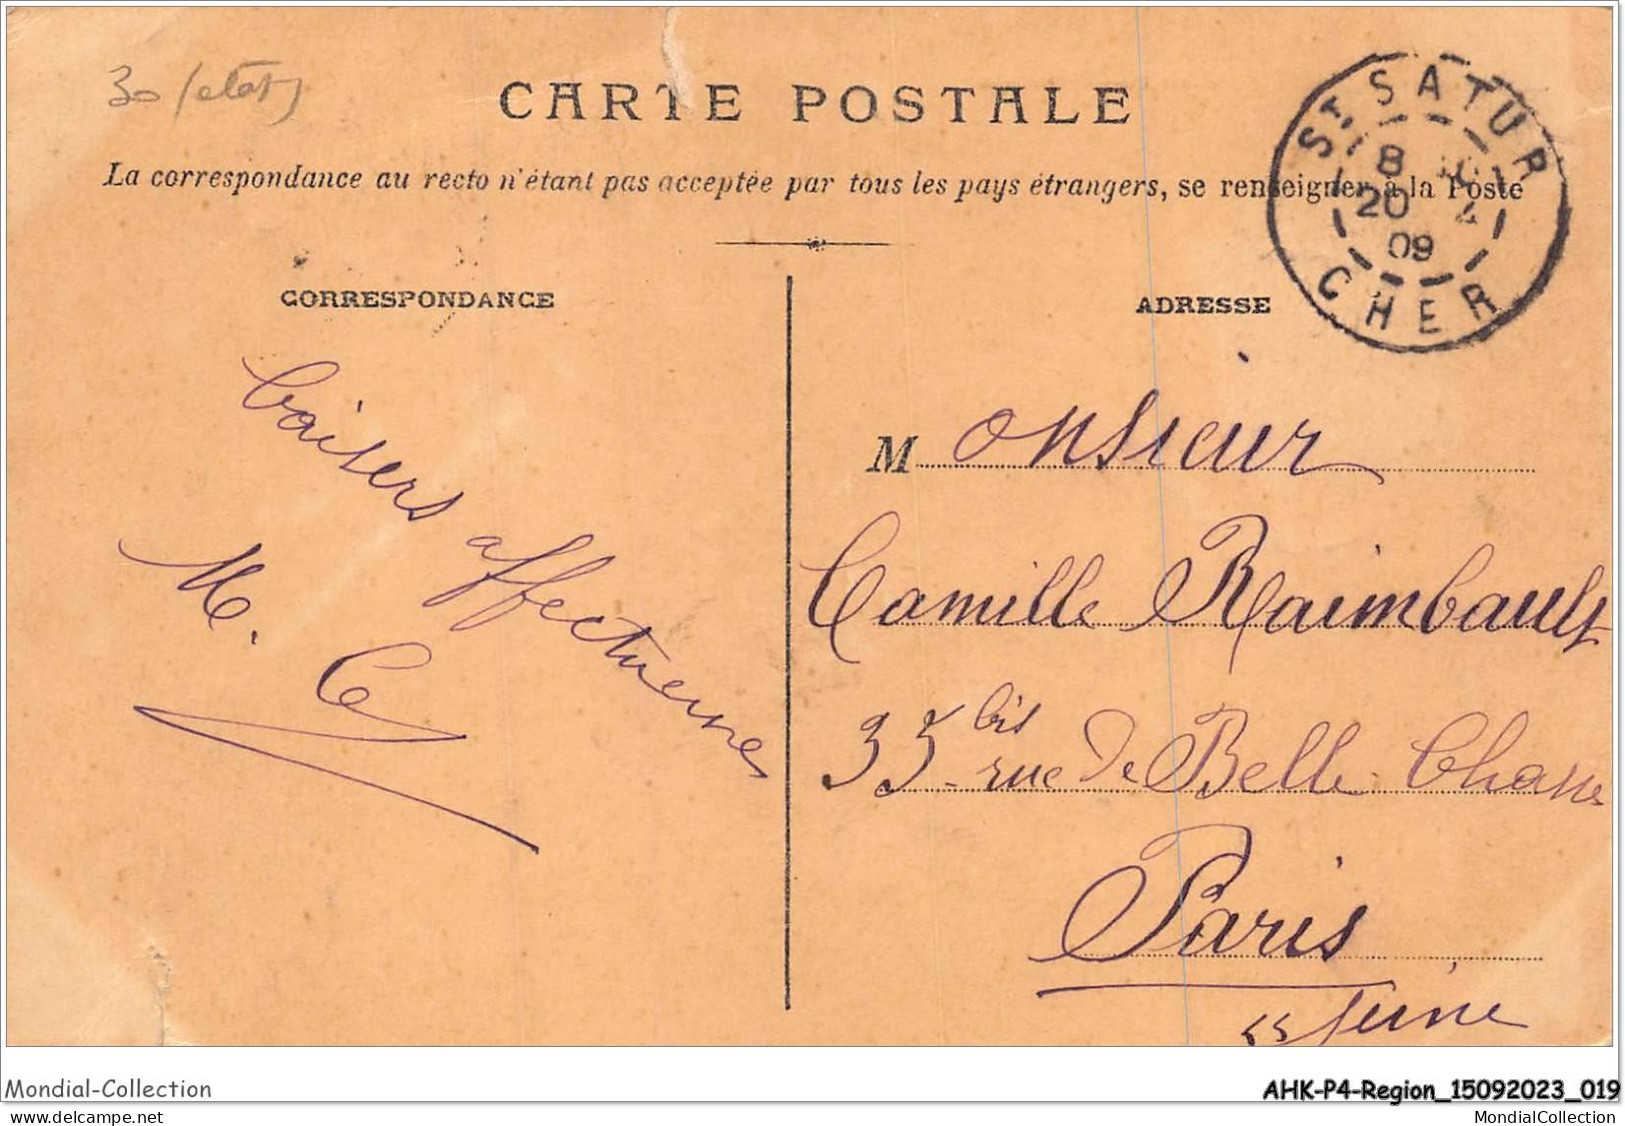 30 (état)
CARTE POSTALE
La correspondance au recto n'étant pas acceptée par tous les pays étrangers, se renseigner à la Poste
ST SATUR
8
20 4
09
CHER
CORRESPONDANCE
ADRESSE
baisers affectueuses
M. C
Monsieur
Camille Raimbault
35 bis rue de Belle Chasse
Paris
Seine
Mondial-Collection
AHK-P4-Region_15092023_019
www.delcampe.net
MondialCollection